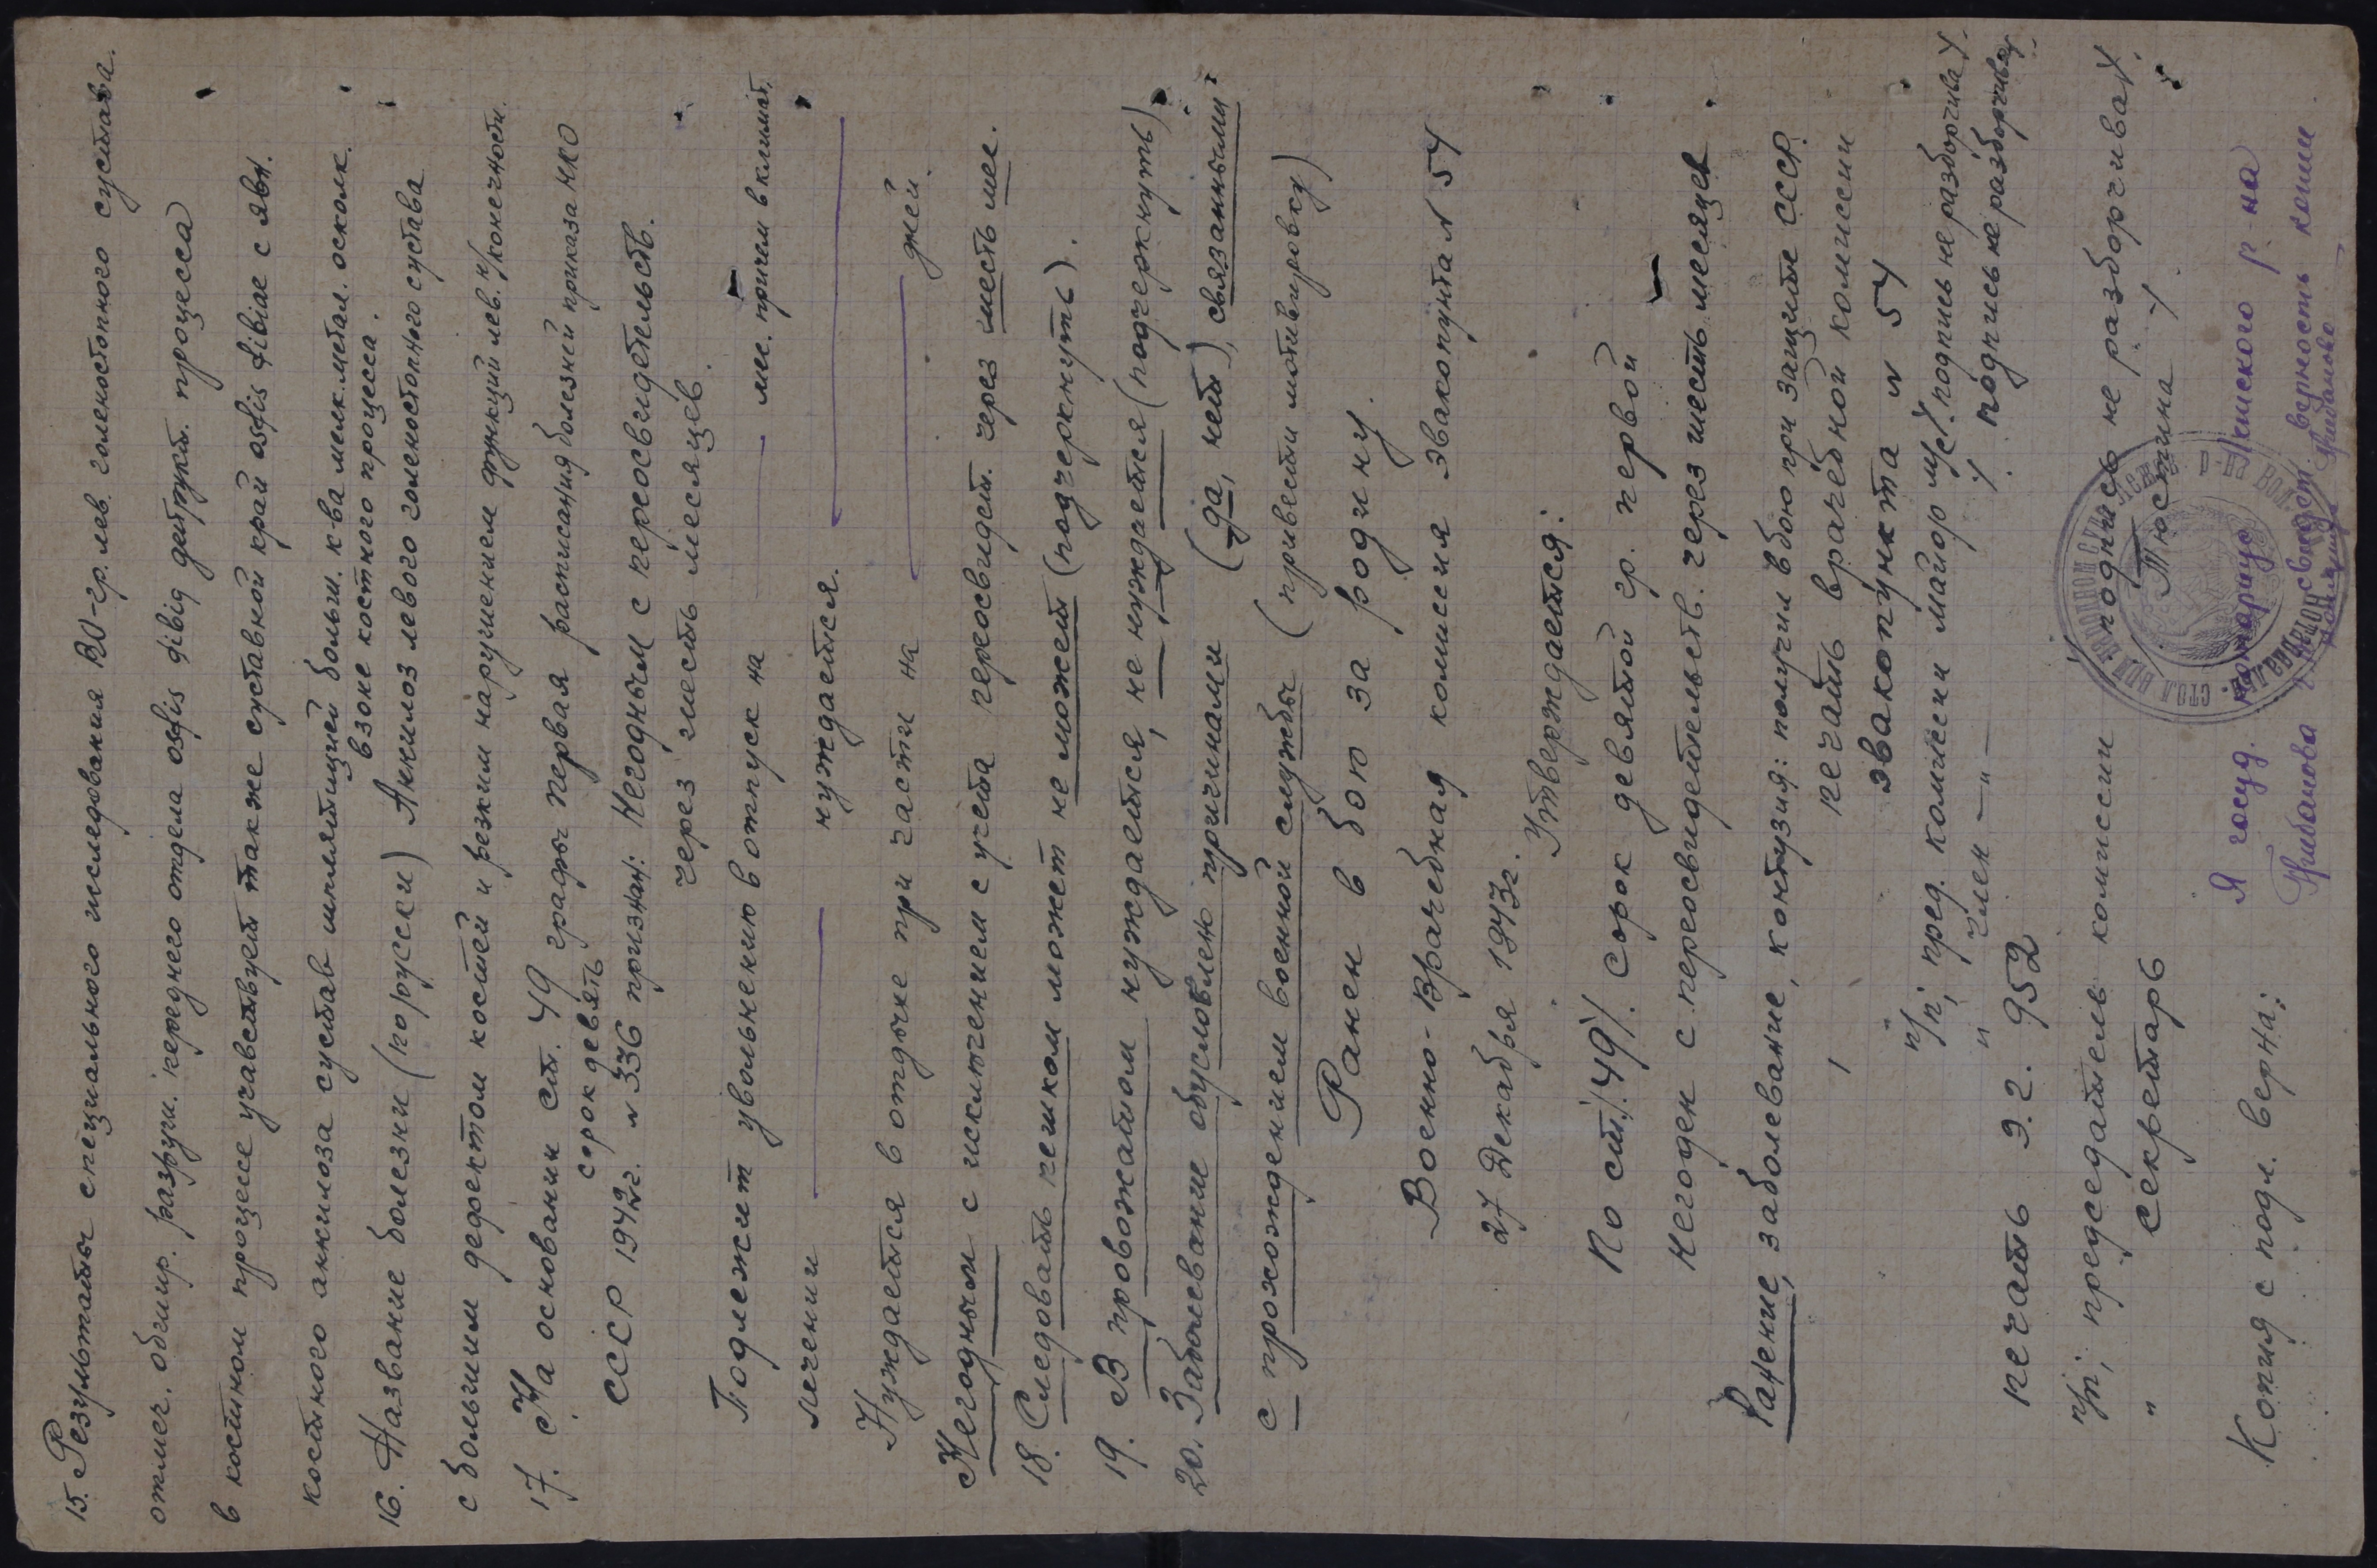 15. Результаты специального исследования RO-гр. лев. голеностопного сустава.
отмеч. обшир. разруш. переднего отдела osfis tibia деструкт. процесса
в костном процессе учавствует также суставной край osfis fibiae с явн.
костного анкилоза сустав имеятищей больш. к-ва мелк. метал. осколк.
в зоне костного процесса.
16. Название болезни (по русски) Анкилоз левого голеностопного сустава
с большим дефектом костей и резким нарушением функций лев. н/конечности.
17. На основании ст. 49 графы первая расписания болезней приказа НКО
сорок девять
СССР 1942г. № 336 признан: Негодным с переосвидетельств.
через шесть месяцев.
Подлежит увольнению в отпуск на мес. причем в климат.
лечении нуждается.
Нуждается в отдыхе при части на дней.
Негодным с исключением с учета переосвидет. через шесть мес.
18. Следовать пешком может не может (подчеркнуть).
19. В провожатом нуждается, не нуждается (подчеркнуть)
20. Заболевание обусловлено причинами (да, нет), связанными
с прохождением военной службы (привести мотивировку)
Ранен в бою за родину.
Военно-Врачебная комиссия эвакопункта № 54
27 Декабря 1943г.
Утверждается:
По ст. /49/. Сорок девятой гр. первой
Негоден с переосвидетельств. через шесть месяцев
Ранение, заболевание, контузия: получил в бою при защите СССР.
/ печать врачебной комиссии
эвакопункта № 54
п/п, пред. комиссии майор м/с/. подпись не разборчива/.
" член — " — /. подпись не разборчива/.
печать 9.2. 952
п/п, председатель комиссии /. подпись не разборчива/.
" секретарь /. Тюстина /.
Копия с подл. верна:
Я госуд. нотариус Лежского р-на
Грибанова свидет. верность копии
нотариус Грибанова